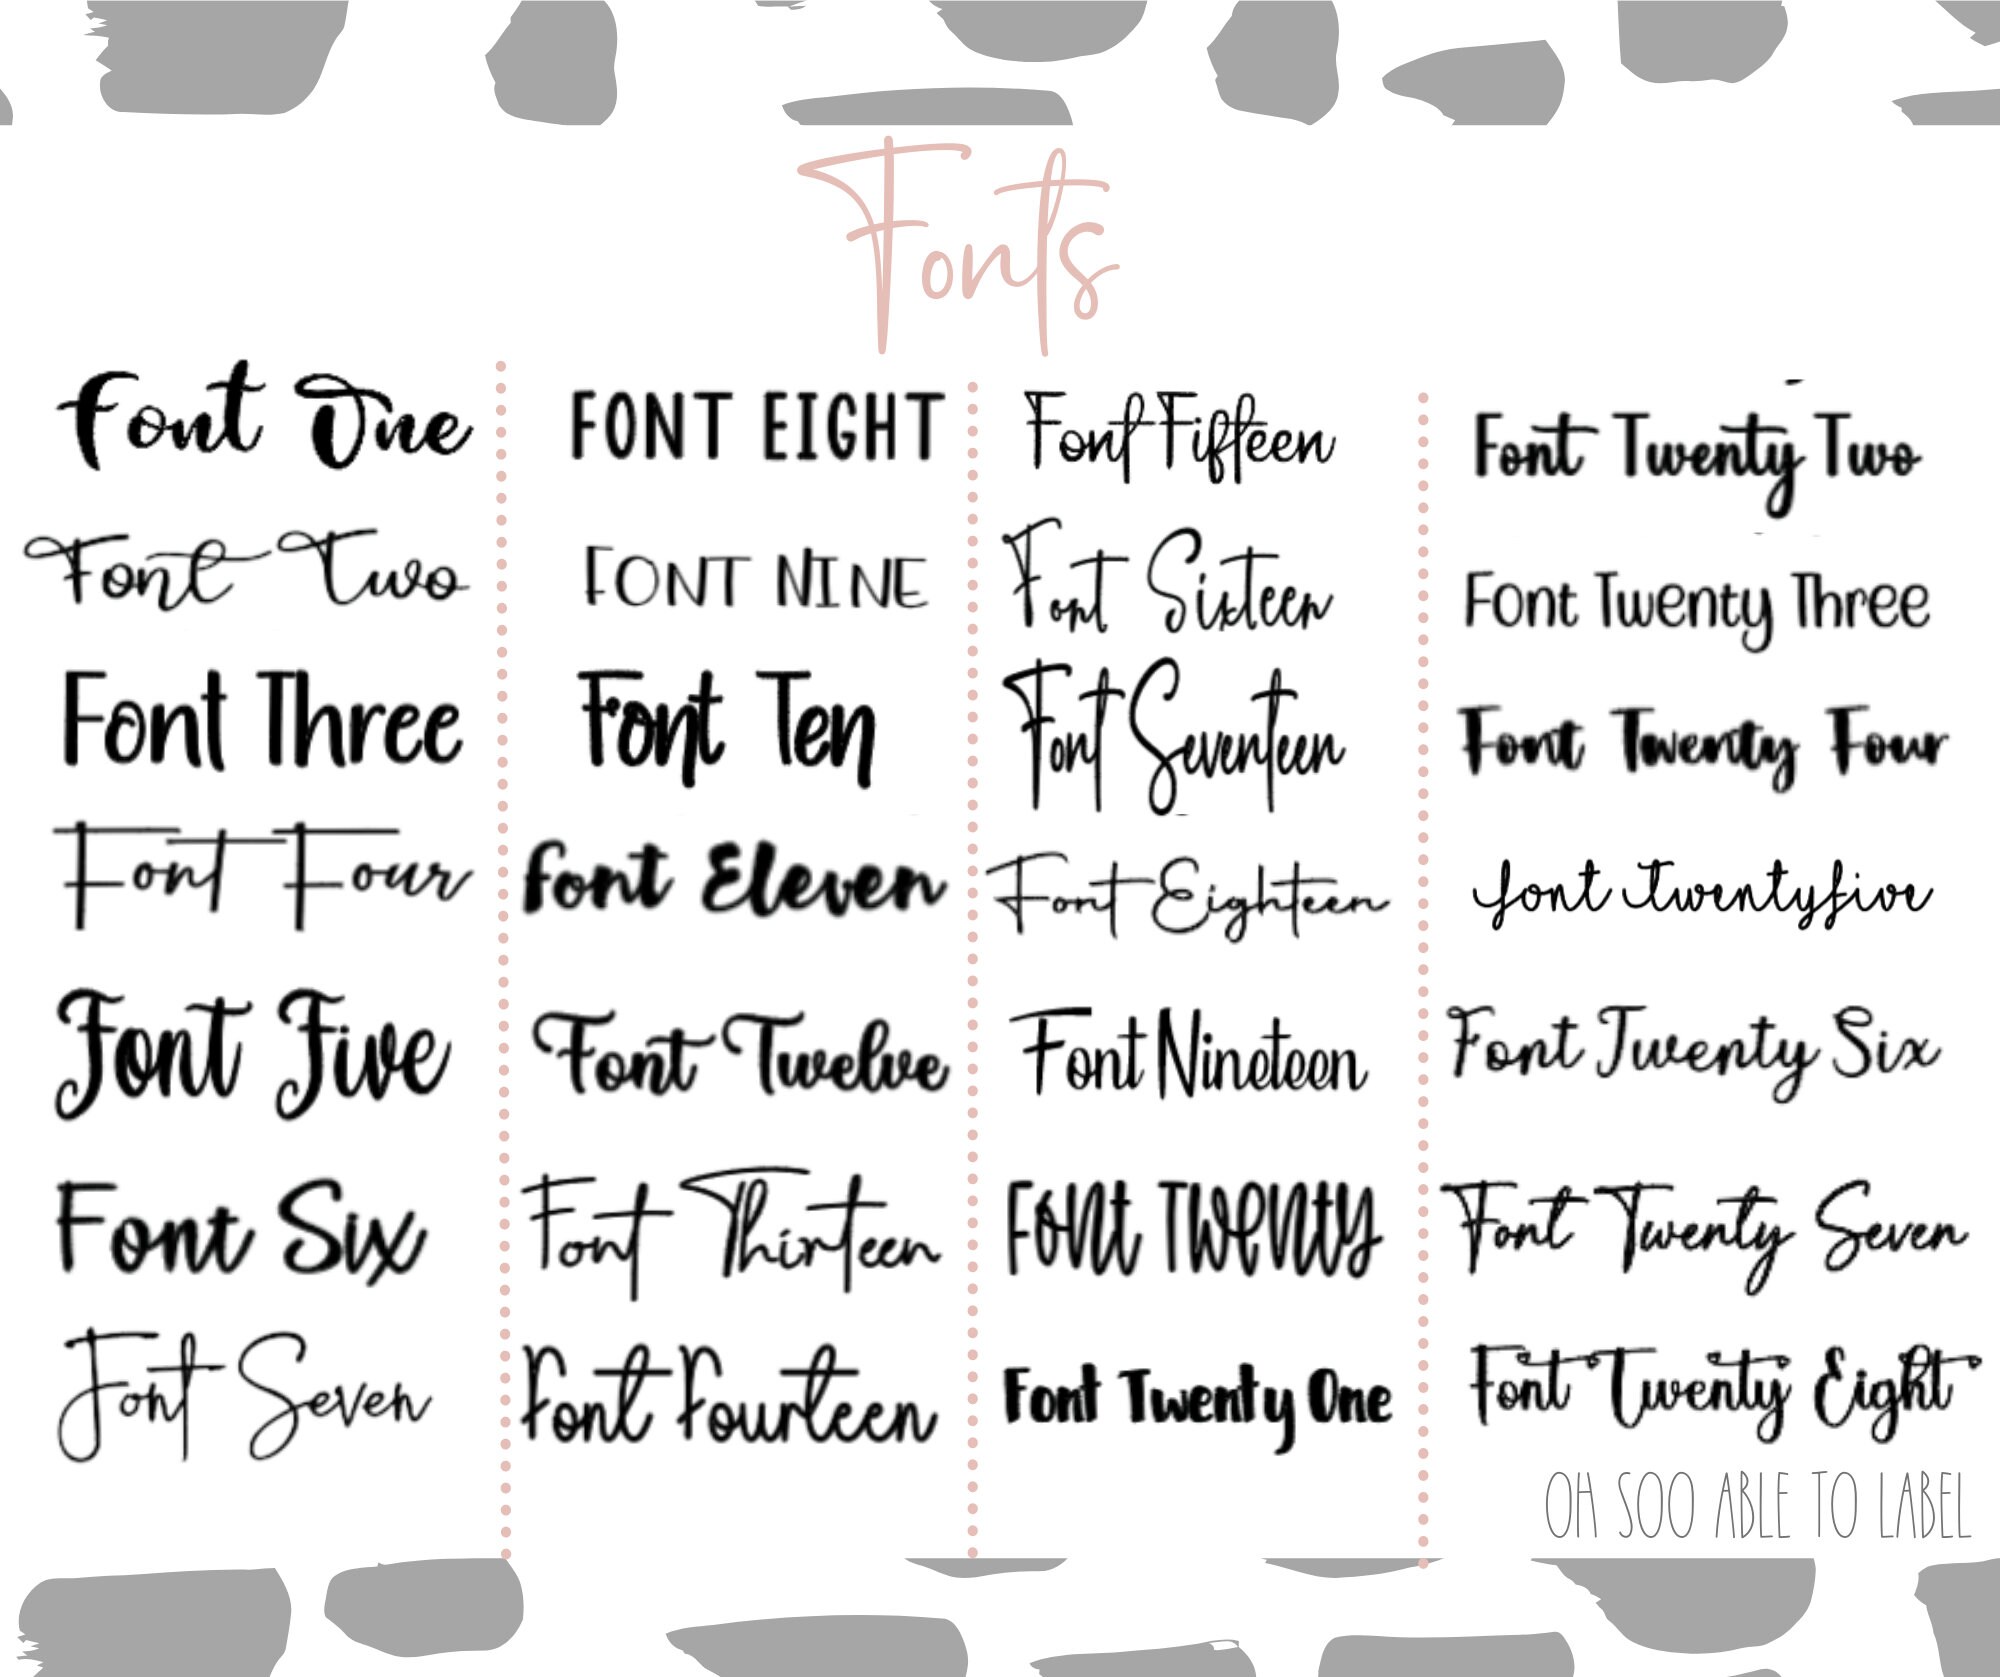 Fonts
Font One
Font Two
Font Three
Font Four
Font Five
Font Six
Font Seven
FONT EIGHT
FONT NINE
Font Ten
font Eleven
Font Twelve
Font Thirteen
Font Fourteen
Font Fifteen
Font Sixteen
Font Seventeen
Font Eighteen
Font Nineteen
FONT TWENTY
Font Twenty One
Font Twenty Two
Font Twenty Three
Font Twenty Four
font Twentyfive
Font Twenty Six
Font Twenty Seven
Font Twenty Eight
OH SOO ABLE TO LABEL